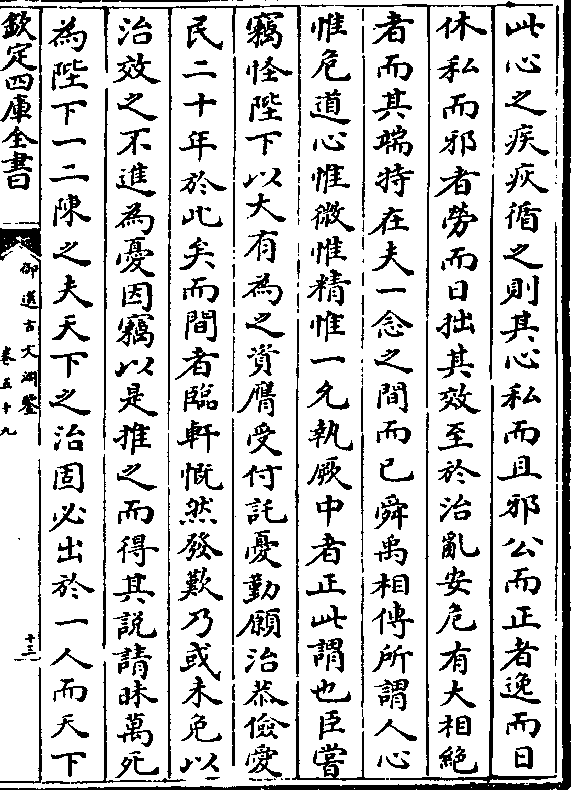 此心之疾疢循之則其心私而且邪公而正者逸而日
休私而邪者勞而日拙其效至於治亂安危有大相絶
者而其端特在夫一念之間而已舜禹相傳所謂人心
惟危道心惟微惟精惟一允執厥中者正此謂也臣嘗
竊怪陛下以大有為之資膺受付託憂勤願治恭儉愛
民二十年於此矣而間者臨軒慨然發歎乃或未免以
治效之不進為憂因竊以是推之而得其說請昧萬死
為陛下一二陳之夫天下之治固必出於一人而天下
欽定四庫全書
御選古文淵鑒
卷五十九
十三